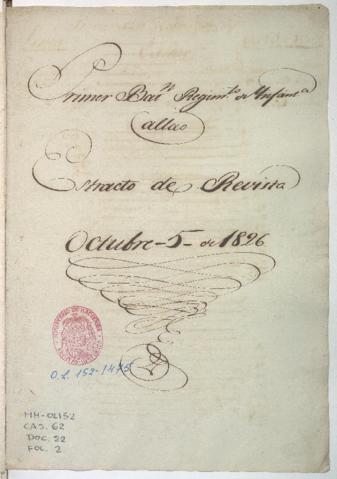 Primer Baⁿ. Regimᵗᵒ de Infantᵃ
Callao
Estracto de Revista
Octubre-5-de 1826
O.L. 152-1475
MH-OL152
CAJ. 62
DOC. 22
FOL. 2